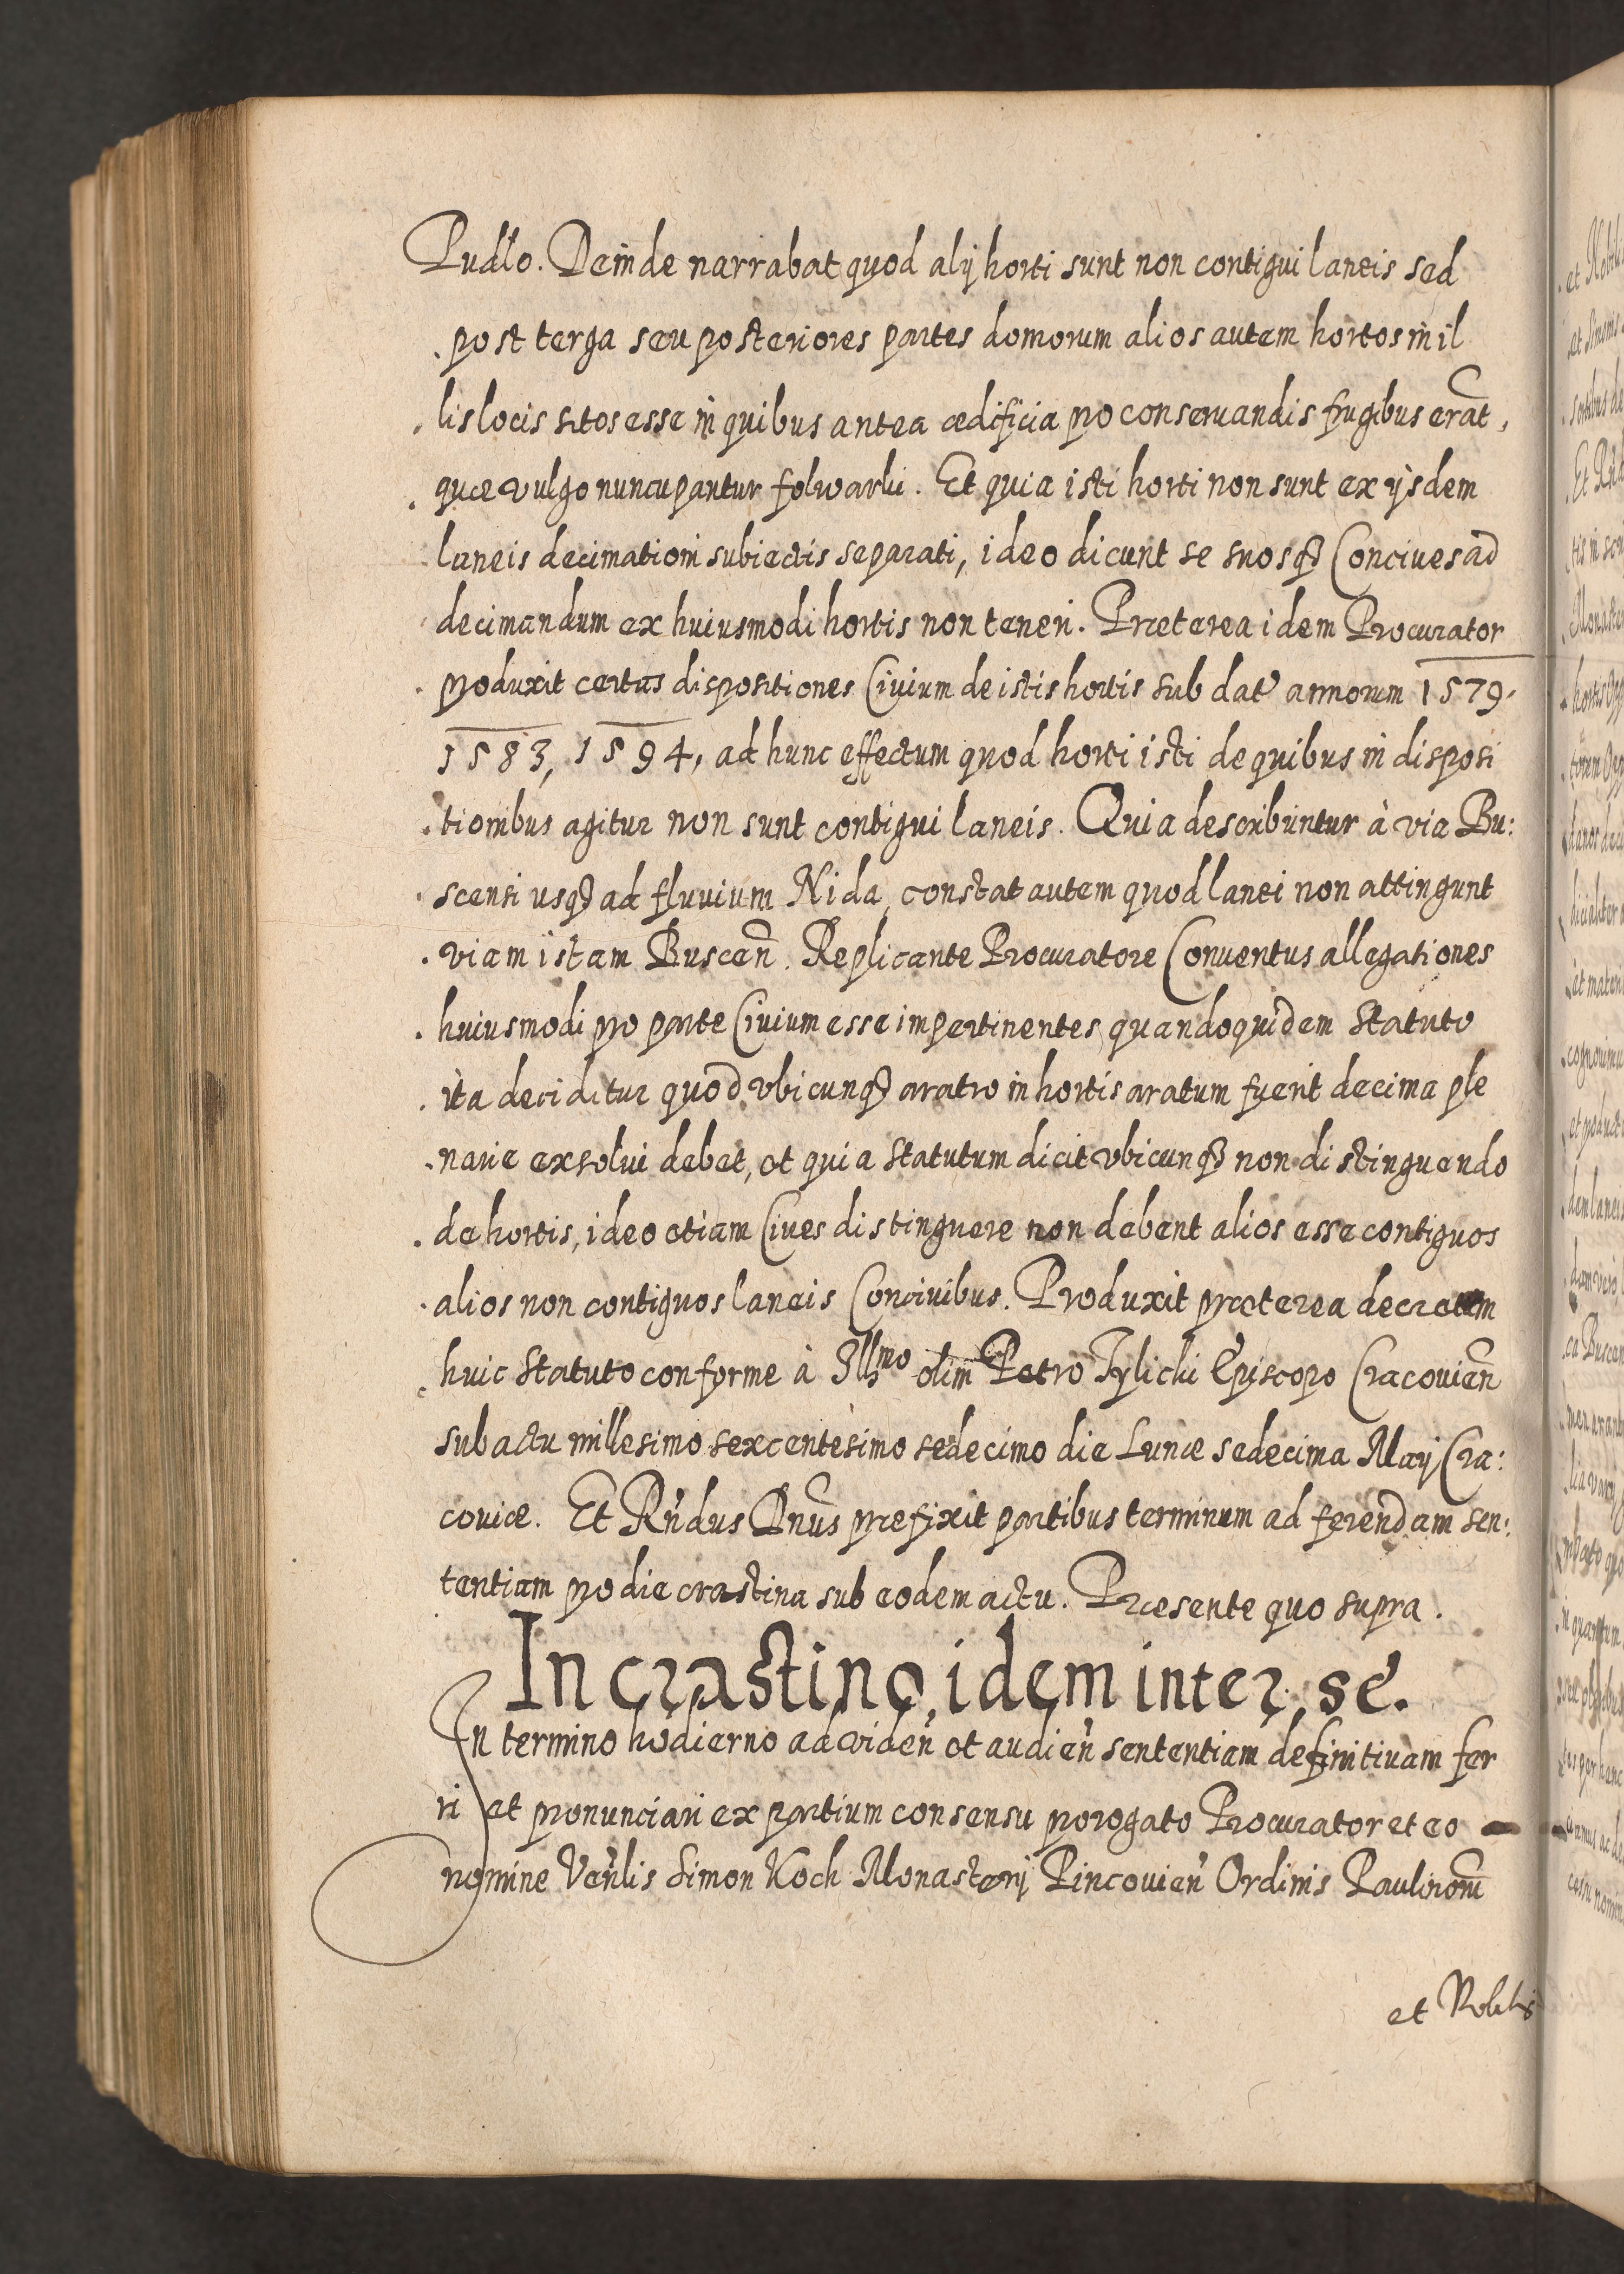 Pudlo. Deinde narrabat quod alij horti sunt non contigui laneis sed
post terga seu posteriores partes domorum alios autem hortos in il
lis locis sitos esse in quibus antea ædificia pro conseruandis frugibus erāt,
quæ vulgo nuncupantur folwarki. Et quia isti horti non sunt ex ijsdem
laneis decimationi subiectis separati, ideo dicunt se suosq3 Conciues ad
decimandum ex huiusmodi hortis non teneri. Præterea idem Procurator
produxit certas dispositiones Ciuium de istis hortis sub dat' annorum 1579.
1583, 1594, ad hunc effectum quod horti isti de quibus in disposi
tionibus agitur non sunt contigui laneis. Quia describuntur à via Bu:
scensi usq3 ad fluuium Nida, constat autem quod lanei non attingunt
viam istam Buscen̄. Replicante Procuratore Conuentus allegationes
huiusmodi pro parte Ciuium esse impertinentes quandoquidem Statuto
ita deciditur quod vbicunq3 aratro in hortis aratum fuerit decima ple
narie exsolui debet, et quia statutum dicit vbicunq3 non distinguendo
de hortis, ideo etiam Ciues distinguere non debent alios esse contiguos
alios non contiguos laneis Conciuibus. Produxit præterea decretum
huic Statuto conforme à Illmo olim Petro Tylicki Episcopo Cracouien̄
sub actu millesimo sexcentesimo sedecimo die Lunæ sedecima Maij Cra:
couiæ. Et Rn̄dus Dn̄us præfixit partibus terminum ad ferendam sen:
tentiam pro die crastina sub eodem actu. Præsente quo supra.
In crastino, idem inter se.
In termino hodierno ad viden̄ et audien̄ sententiam definitiuam fer
ri et pronunciari ex partium consensu prorogato Procurator et eo
nomine Ven̄lis Simon Koch Monasterij Pincouien̄ Ordinis Paulinorū
et Nobilis